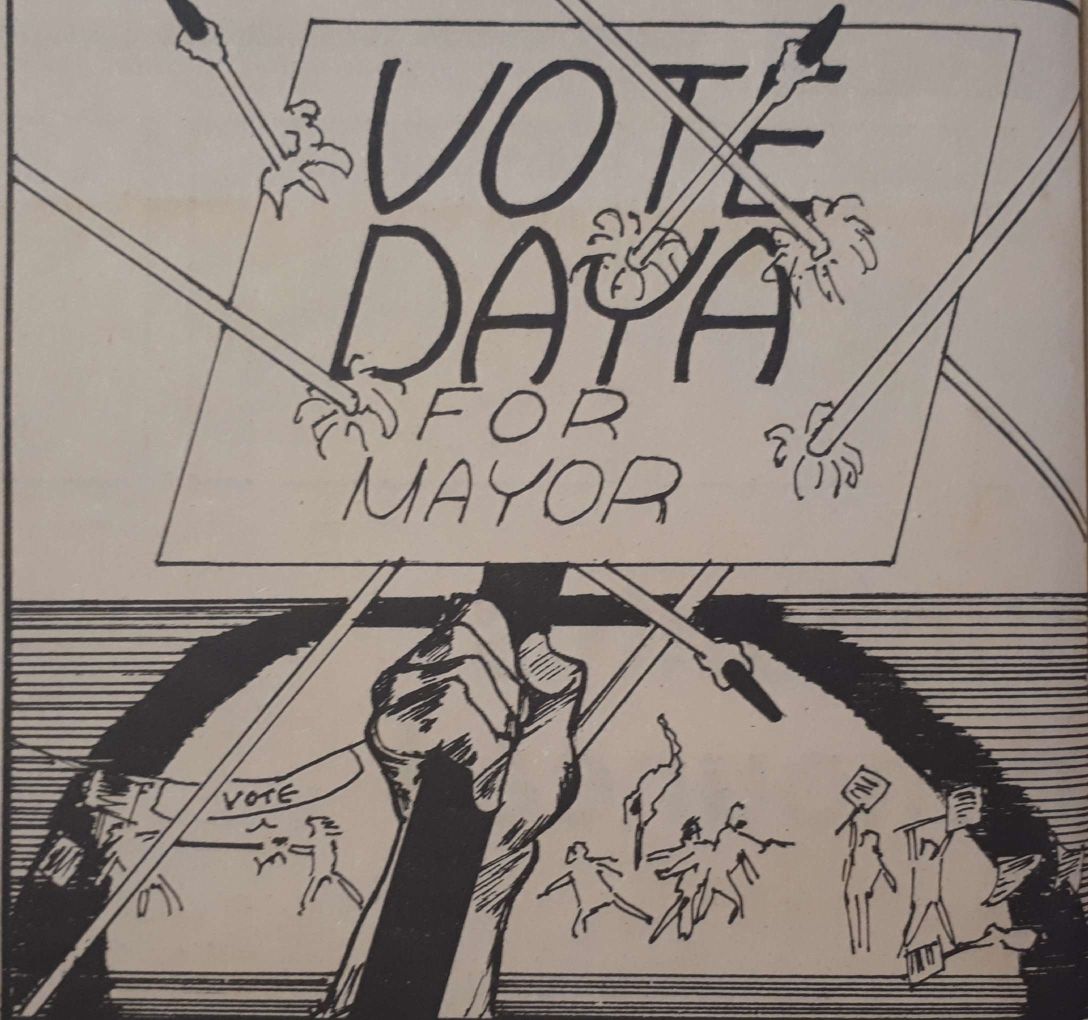 VOTE
DAYA
FOR
MAYOR
VOTE